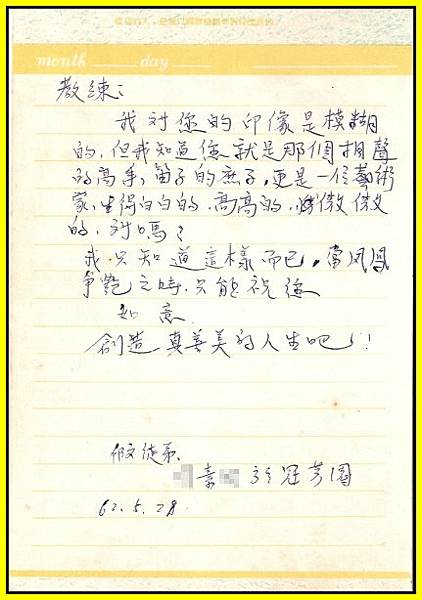 month day
教練：
我對您的印像是模糊
的，但我知道您就是那個相聲
的高手，笛子的底子，更是一位藝術
家，生得白白的、高高的、微傲
的，對嗎？
我只知道這樣而已，當鳳凰
爭艷之時，只能祝您
如意
創造真善美的人生吧！
徒弟
素 於冠芳園
62.5.28.